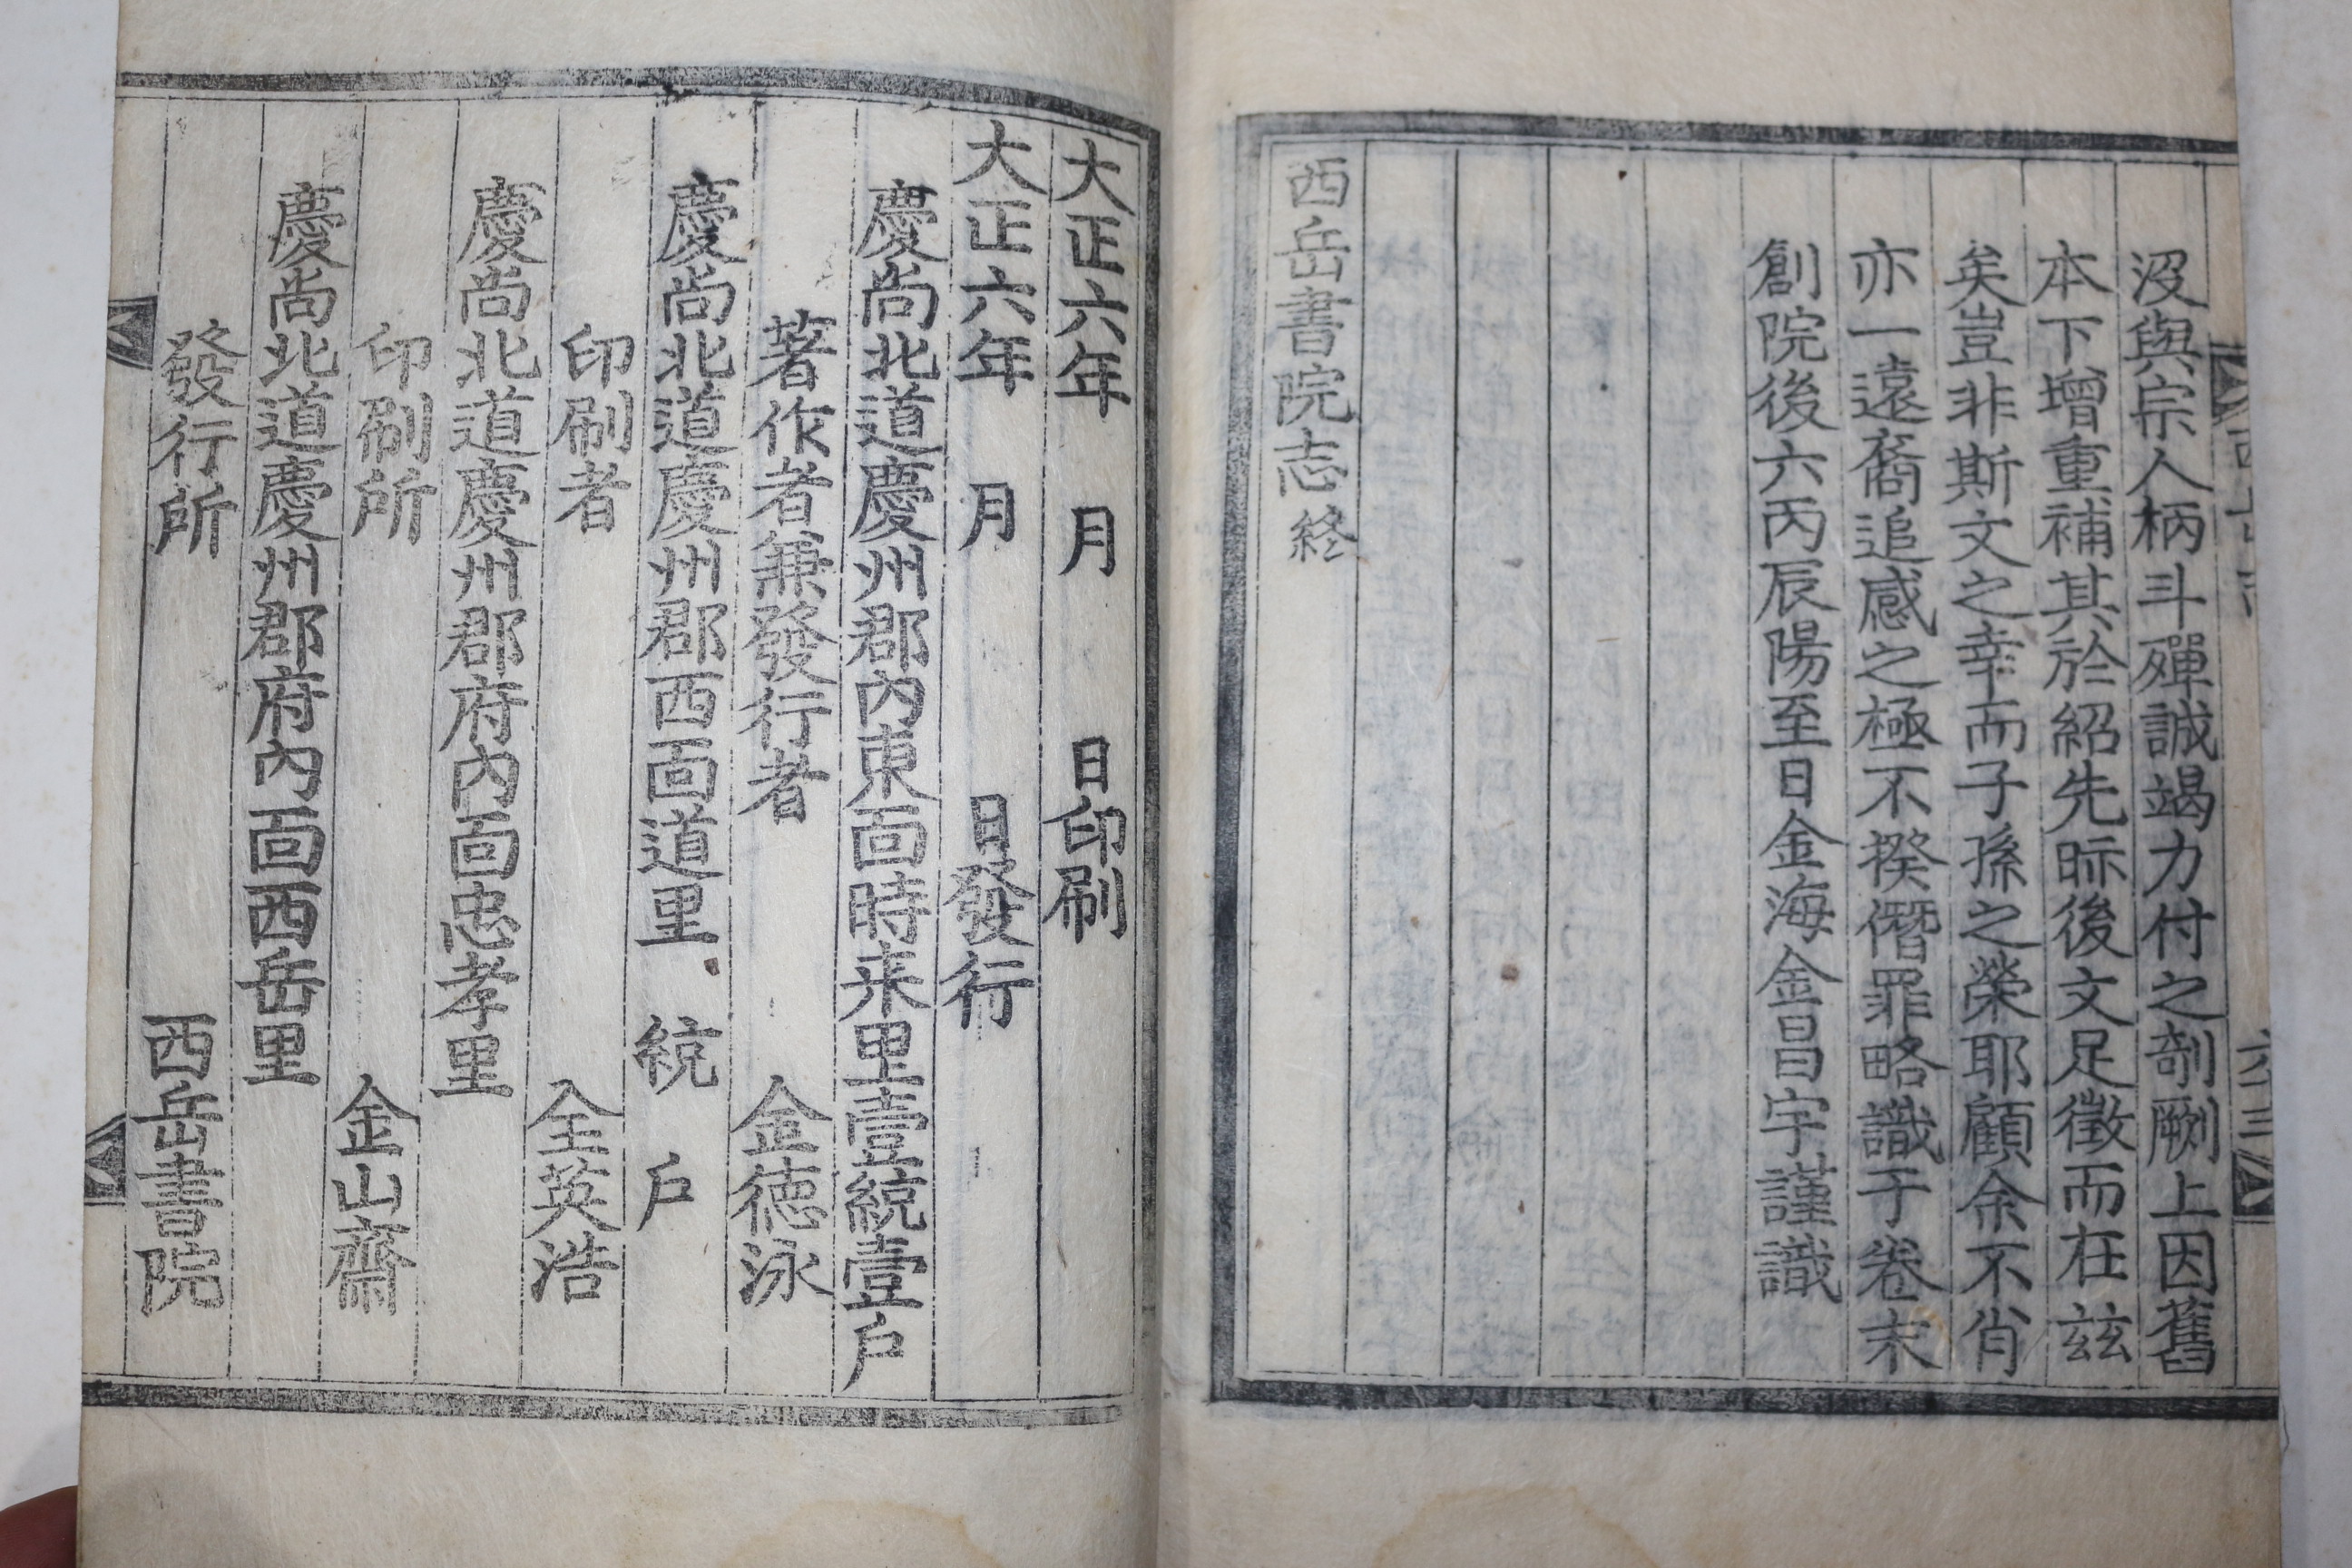 沒與宗人柄斗殫誠竭力付之剞劂上因舊
本下增重補其於紹先眎後文足徵而在玆
矣豈非斯文之幸而子孫之榮耶顧余不肖
亦一遠裔追感之極不揆僭罪略識于卷末
創院後六丙辰陽至日金海金昌宇謹識
西岳書院志終
大正六年 月 日印刷
大正六年 月 日發行
慶尙北道慶州郡內東面時来里壹統壹戶
著作者兼發行者 金德泳
慶尙北道慶州郡西面道里 統 戶
印刷者 全英浩
慶尙北道慶州郡府內面忠孝里
印刷所 金山齋
慶尙北道慶州郡府內面西岳里
發行所 西岳書院